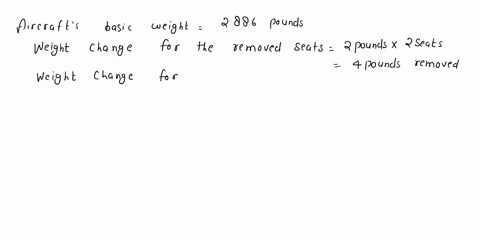 Aircraft's basic weight = 2886 pounds
Weight Change for the removed seats = 2 pounds x 2 Seats
= 4 pounds removed
Weight Change for